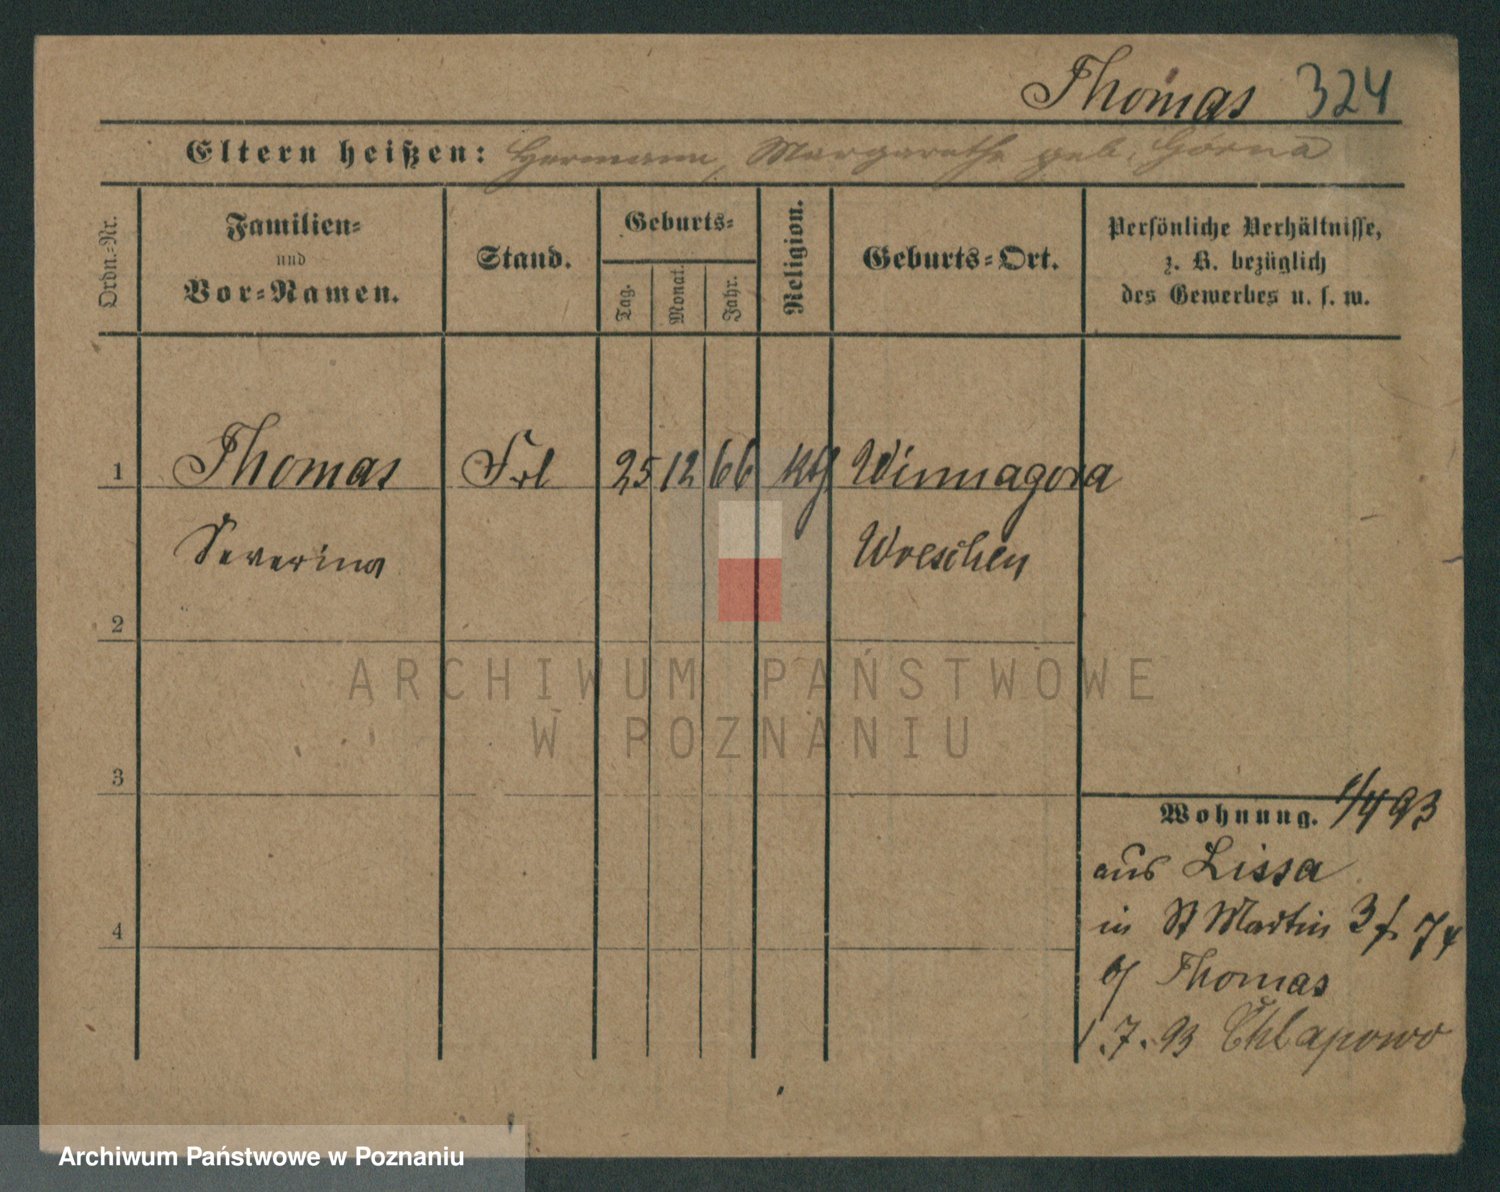 Thomas 324
Eltern heißen: Hermann, Margarethe geb. Górna
Ordn.-Nr.
Familien-
und
Vor-Namen.
Stand.
Geburts-
Tag.
Monat.
Jahr.
Religion.
Geburts-Ort.
Persönliche Verhältnisse,
z. B. bezüglich
des Gewerbes u. s. w.
1 Thomas Frl 25 12 66 kth Winnagora
Severina Wreschen
2
ARCHIWUM PAŃSTWOWE
W POZNANIU
3
Wohnung. 1/4 93
aus Lissa
in St Martin 3 f. 74
b/ Thomas
4
1.7.93 Chlapowo
Archiwum Państwowe w Poznaniu